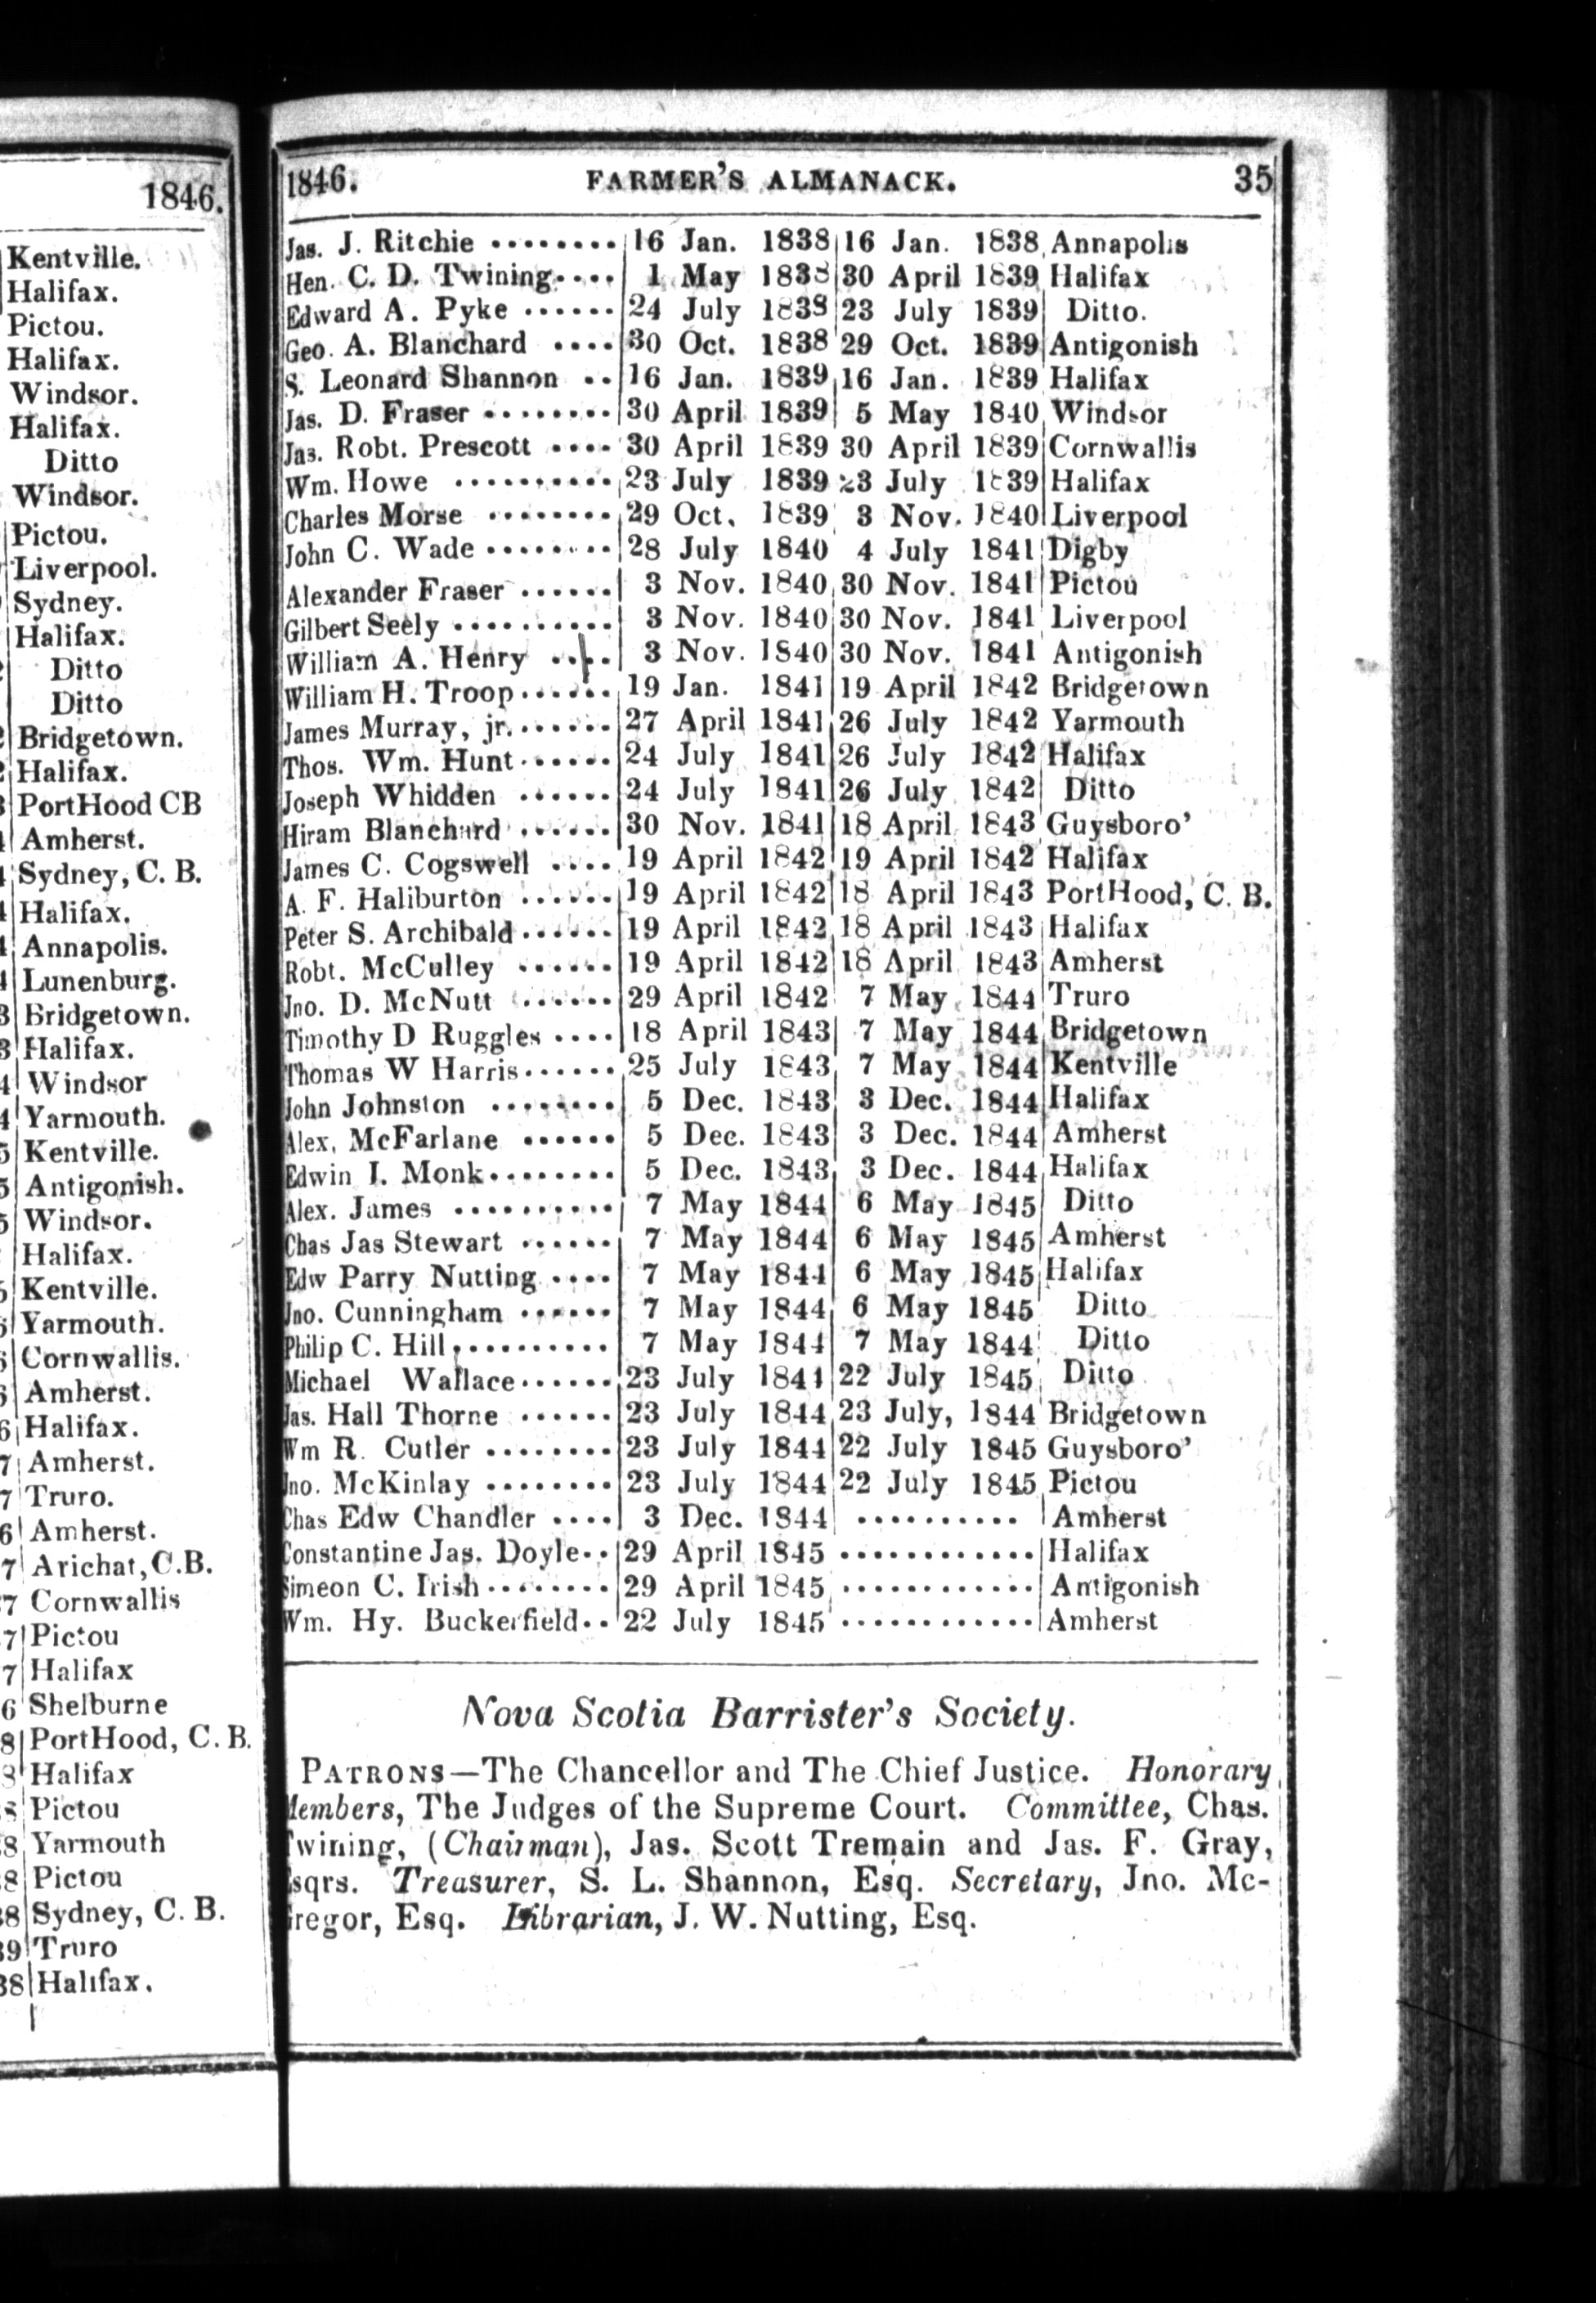 1846.
Kentville.
Halifax.
Pictou.
Halifax.
Windsor.
Halifax.
Ditto
Windsor.
Pictou.
Liverpool.
Sydney.
Halifax.
Ditto
Ditto
Bridgetown.
Halifax.
PortHood CB
Amherst.
Sydney, C. B.
Halifax.
Annapolis.
Lunenburg.
3 Bridgetown.
3 Halifax.
4 Windsor
4 Yarmouth.
5 Kentville.
5 Antigonish.
5 Windsor.
Halifax.
5 Kentville.
Yarmouth.
Cornwallis.
Amherst.
6 Halifax.
7 Amherst.
7 Truro.
6 Amherst.
7 Arichat, C.B.
7 Cornwallis
7 Pictou
7 Halifax
6 Shelburne
8 PortHood, C. B.
8 Halifax
8 Pictou
8 Yarmouth
8 Pictou
38 Sydney, C. B.
39 Truro
38 Halifax.
1846. FARMER'S ALMANACK. 35
Jas. J. Ritchie ........ 16 Jan. 1838 16 Jan. 1838 Annapolis
Hen. C. D. Twining.... 1 May 1838 30 April 1839 Halifax
Edward A. Pyke ...... 24 July 1838 23 July 1839 Ditto.
Geo. A. Blanchard .... 30 Oct. 1838 29 Oct. 1839 Antigonish
S. Leonard Shannon .. 16 Jan. 1839 16 Jan. 1839 Halifax
Jas. D. Fraser ........ 30 April 1839 5 May 1840 Windsor
Jas. Robt. Prescott .... 30 April 1839 30 April 1839 Cornwallis
Wm. Howe .......... 23 July 1839 23 July 1839 Halifax
Charles Morse ........ 29 Oct. 1839 3 Nov. 1840 Liverpool
John C. Wade ........ 28 July 1840 4 July 1841 Digby
Alexander Fraser ...... 3 Nov. 1840 30 Nov. 1841 Pictou
Gilbert Seely .......... 3 Nov. 1840 30 Nov. 1841 Liverpool
William A. Henry .... 3 Nov. 1840 30 Nov. 1841 Antigonish
William H. Troop...... 19 Jan. 1841 19 April 1842 Bridgetown
James Murray, jr....... 27 April 1841 26 July 1842 Yarmouth
Thos. Wm. Hunt...... 24 July 1841 26 July 1842 Halifax
Joseph Whidden ...... 24 July 1841 26 July 1842 Ditto
Hiram Blanchard ...... 30 Nov. 1841 18 April 1843 Guysboro'
James C. Cogswell .... 19 April 1842 19 April 1842 Halifax
A. F. Haliburton ...... 19 April 1842 18 April 1843 PortHood, C. B.
Peter S. Archibald...... 19 April 1842 18 April 1843 Halifax
Robt. McCulley ...... 19 April 1842 18 April 1843 Amherst
Jno. D. McNutt ...... 29 April 1842 7 May 1844 Truro
Timothy D Ruggles .... 18 April 1843 7 May 1844 Bridgetown
Thomas W Harris...... 25 July 1843 7 May 1844 Kentville
John Johnston ........ 5 Dec. 1843 3 Dec. 1844 Halifax
Alex. McFarlane ...... 5 Dec. 1843 3 Dec. 1844 Amherst
Edwin I. Monk........ 5 Dec. 1843 3 Dec. 1844 Halifax
Alex. James .......... 7 May 1844 6 May 1845 Ditto
Chas Jas Stewart ...... 7 May 1844 6 May 1845 Amherst
Edw Parry Nutting .... 7 May 1844 6 May 1845 Halifax
Jno. Cunningham ...... 7 May 1844 6 May 1845 Ditto
Philip C. Hill.......... 7 May 1844 7 May 1844 Ditto
Michael Wallace...... 23 July 1844 22 July 1845 Ditto
Jas. Hall Thorne ...... 23 July 1844 23 July, 1844 Bridgetown
Wm R. Cutler ........ 23 July 1844 22 July 1845 Guysboro'
Jno. McKinlay ........ 23 July 1844 22 July 1845 Pictou
Chas Edw Chandler .... 3 Dec. 1844 .......... Amherst
Constantine Jas. Doyle.. 29 April 1845 ............ Halifax
Simeon C. Irish........ 29 April 1845 ............ Antigonish
Wm. Hy. Buckerfield.. 22 July 1845 ............ Amherst
Nova Scotia Barrister's Society.
PATRONS—The Chancellor and The Chief Justice. Honorary
Members, The Judges of the Supreme Court. Committee, Chas.
Twining, (Chairman), Jas. Scott Tremain and Jas. F. Gray,
Esqrs. Treasurer, S. L. Shannon, Esq. Secretary, Jno. Mc-
Gregor, Esq. Librarian, J. W. Nutting, Esq.